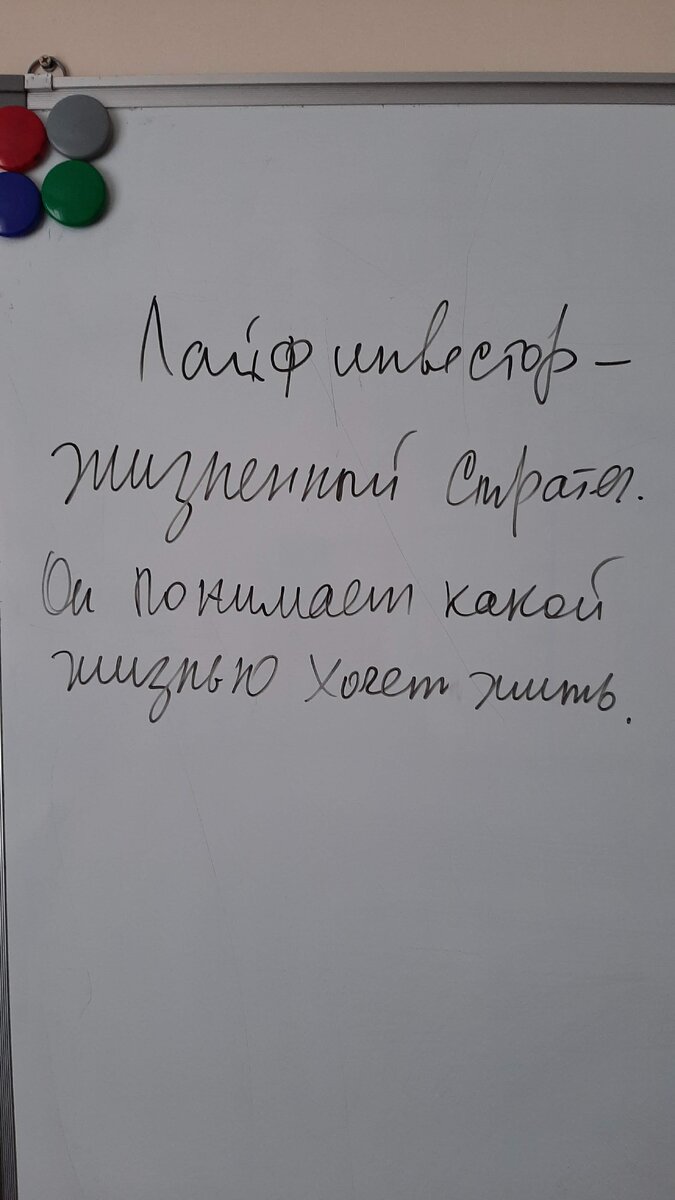 Лайф инвестор –
жизненный стратег.
Он понимает какой
жизнью хочет жить.